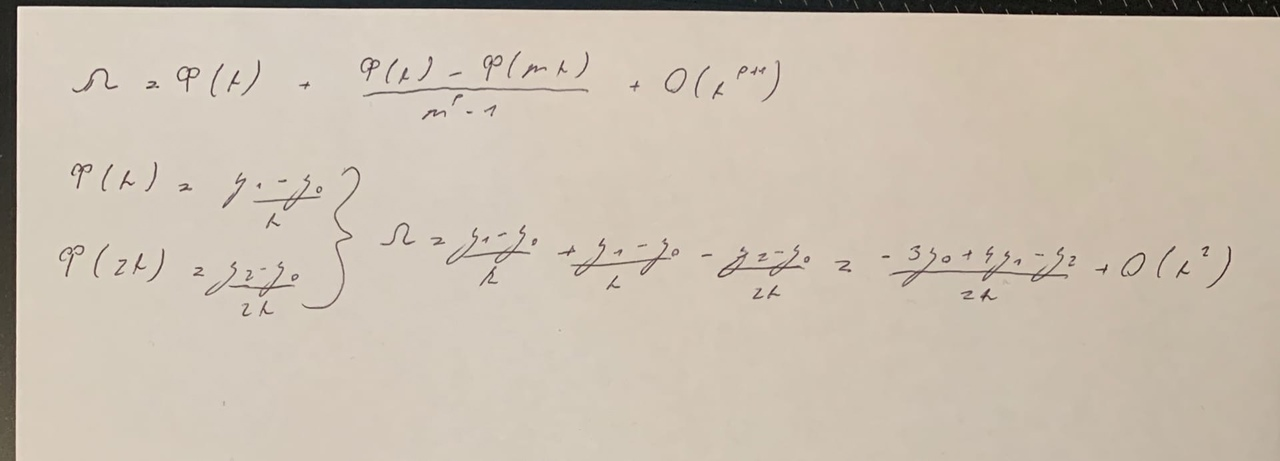 Ω = φ(h) + (φ(h) - φ(mh))/(m^p - 1) + O(h^{p+1})
φ(h) = (y₁ - y₀)/h
φ(2h) = (y₂ - y₀)/2h } Ω = (y₁ - y₀)/h + (y₁ - y₀)/h - (y₂ - y₀)/2h = (-3y₀ + 4y₁ - y₂)/2h + O(h²)